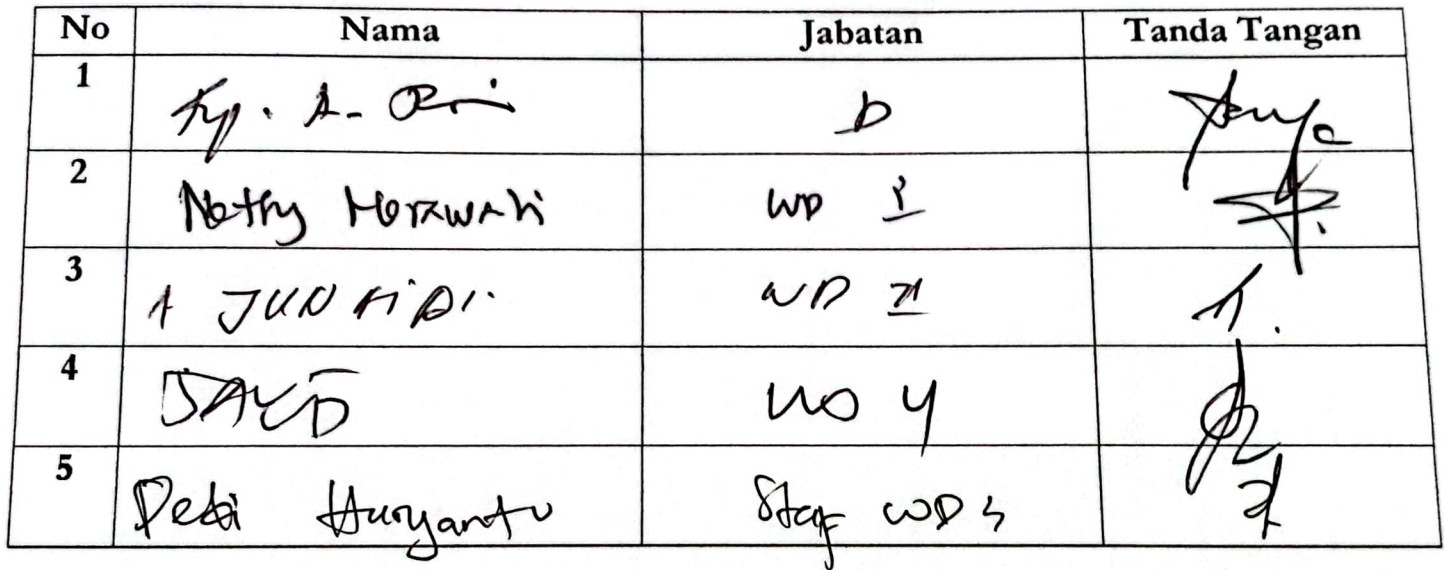 No Nama Jabatan Tanda Tangan
1 D
2 Netty Herawati WD I
3 A JUNAIDI WD II
4 WD 4
5 Deki Huryanto Staf WD 3